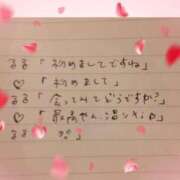 るる「初めましてですね」
♡「初めまして」
るる「会ってみてどうですか?」
♡「最高やん
るる「